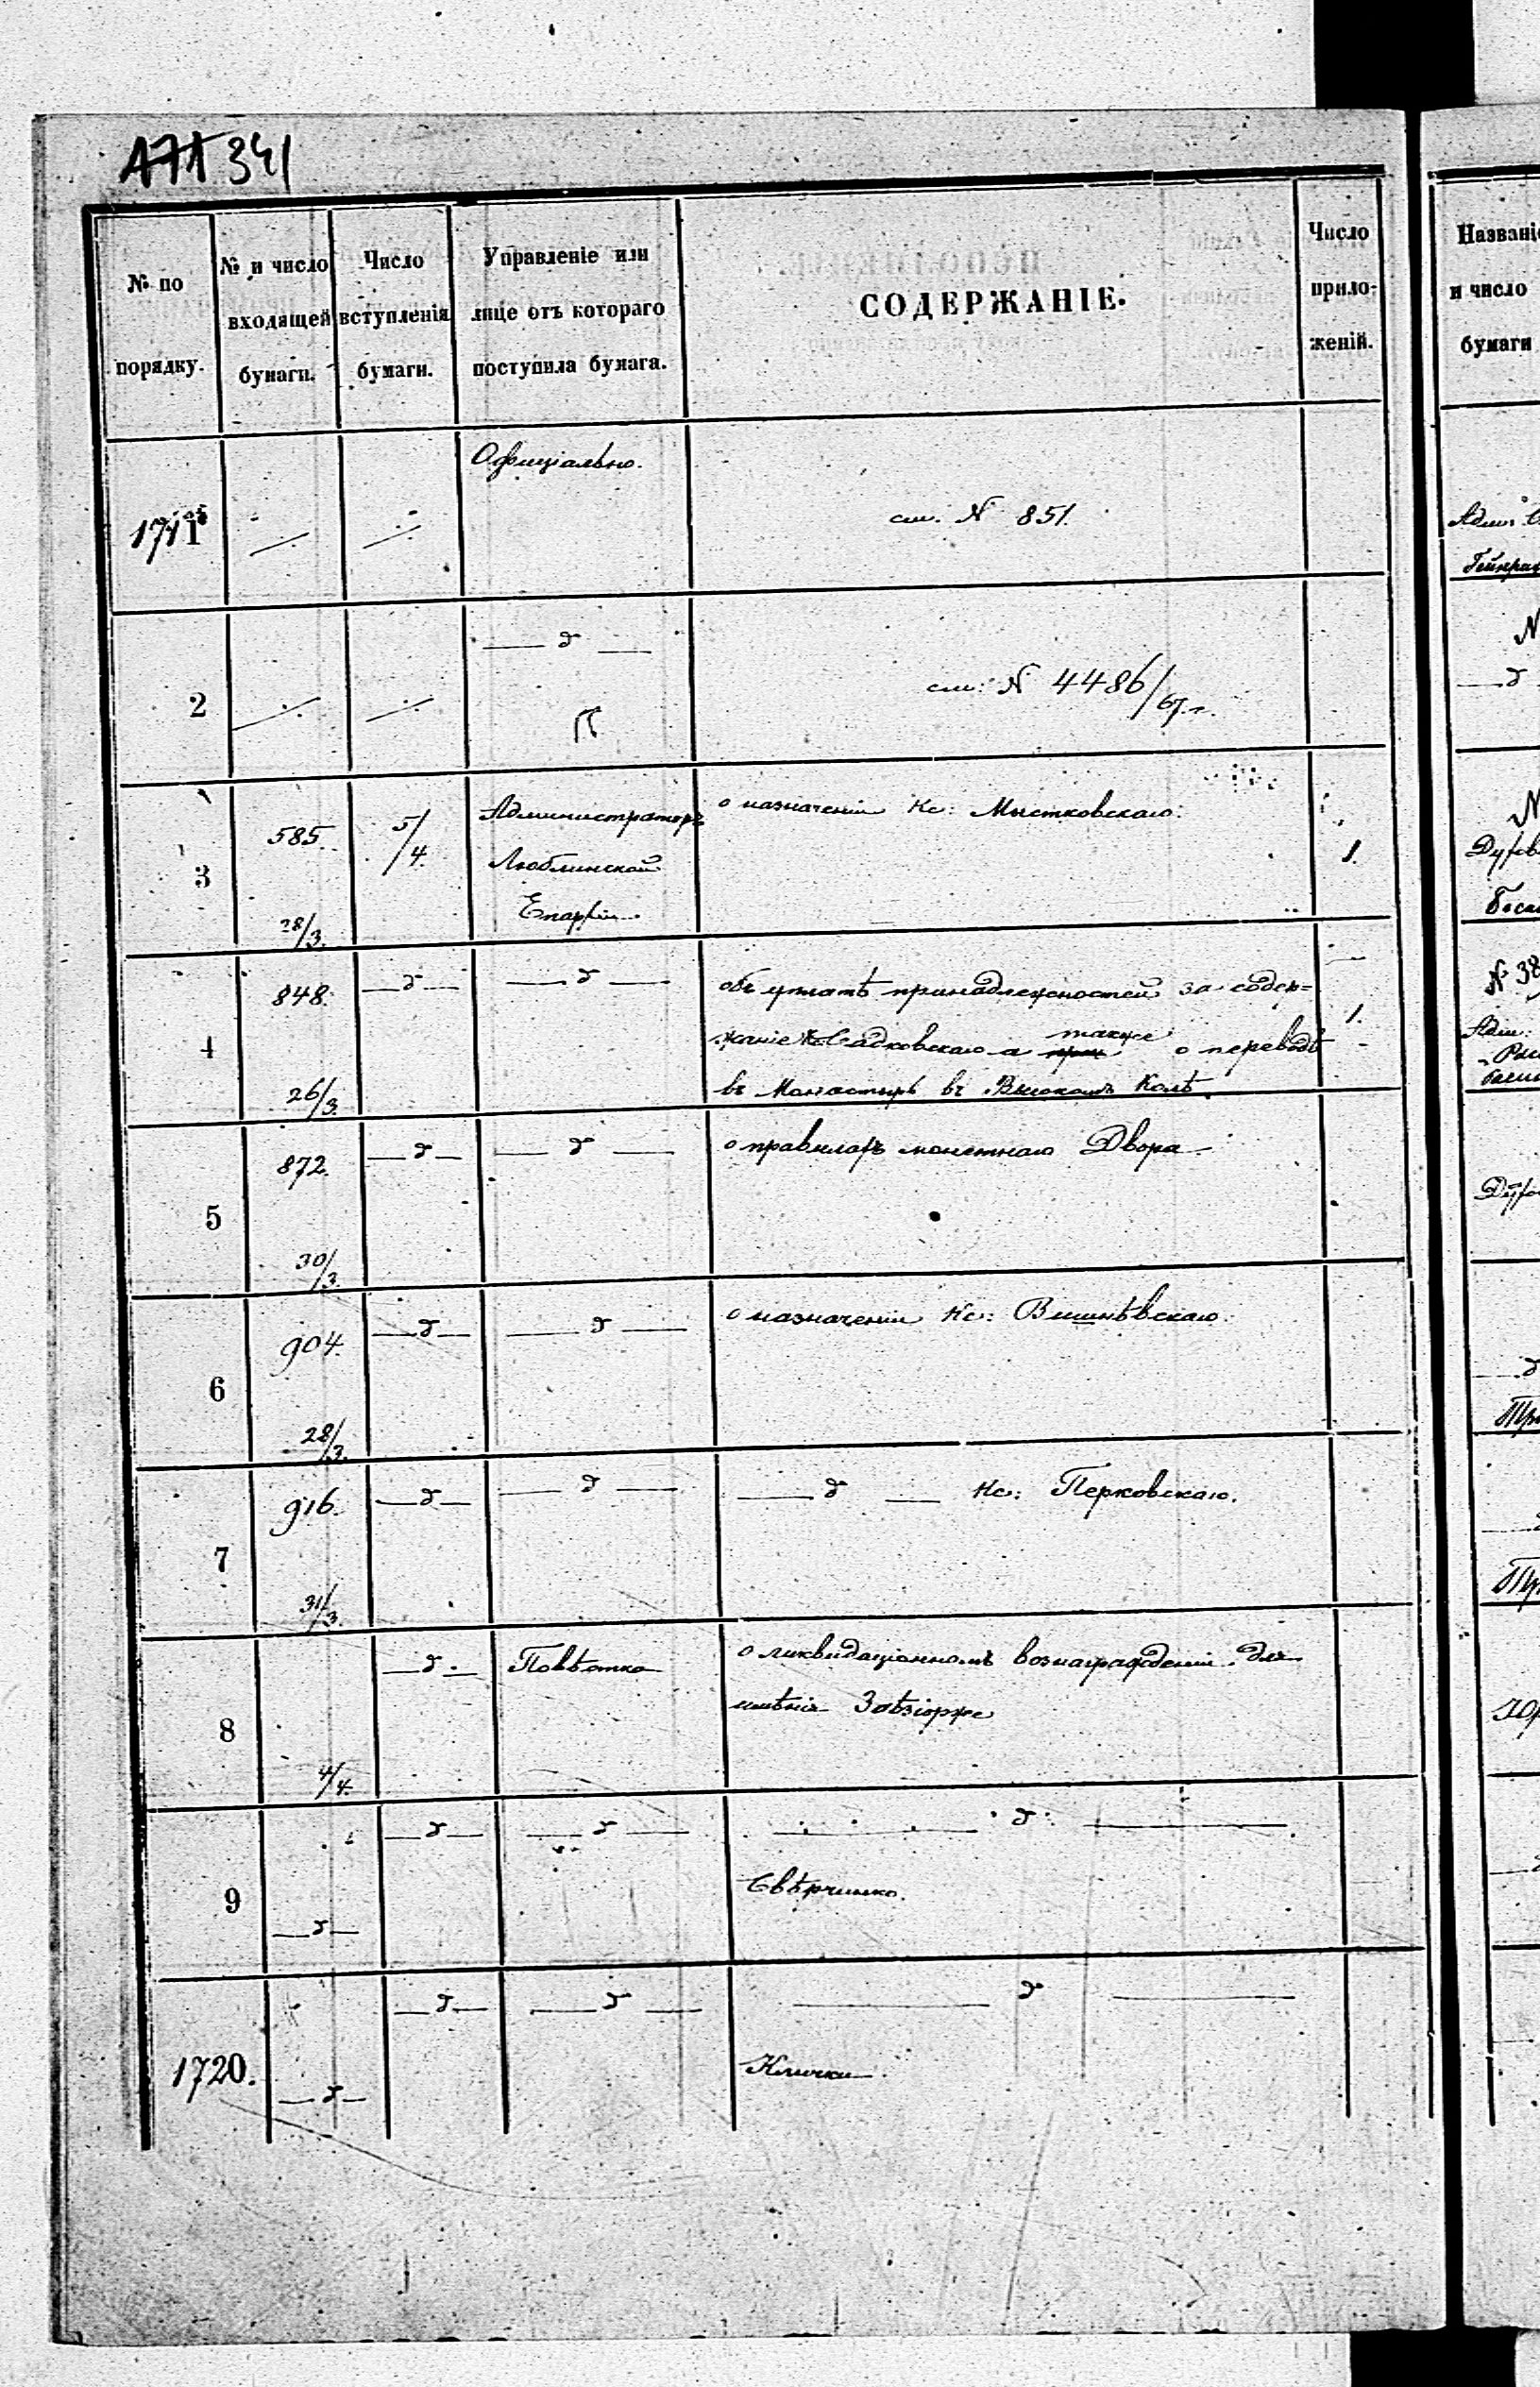 171 341
№ по порядку.
№ и число входящей бумаги.
Число вступленія бумаги.
Управленіе или лице отъ котораго поступила бумага.
СОДЕРЖАНІЕ.
Число приложеній.
Названіе
и число
бумаги
1711
Офиціально.
см. N 851.
2
— д —
см: N 4486/67 г.
3
585.
28/3.
5/4.
Администраторъ
Люблинской
Епархіи.
о назначеніи Кс: Мыстковскаго.
1.
4
848.
26/3.
— д —
— д —
объ уплатѣ принадлежностей за содер=
жаніе Кс Садковскаго а также о переводѣ
въ Монастырь въ Высокомъ Колѣ.
1.
5
872.
30/3.
— д —
— д —
о правилахъ монетнаго Двора
6
904.
28/3.
— д —
— д —
о назначеніи Кс: Вишнѣвскаго.
7
916.
31/3.
— д —
— д —
— д — Кс: Перковскаго.
8
4/4.
— д —
Повѣтка
о ликвидаціонномъ вознагражденіи для
имѣнія
9
— д —
— д —
— д —
— д —
Свѣрчинко.
1720.
— д —
— д —
— д —
— д —
Клички